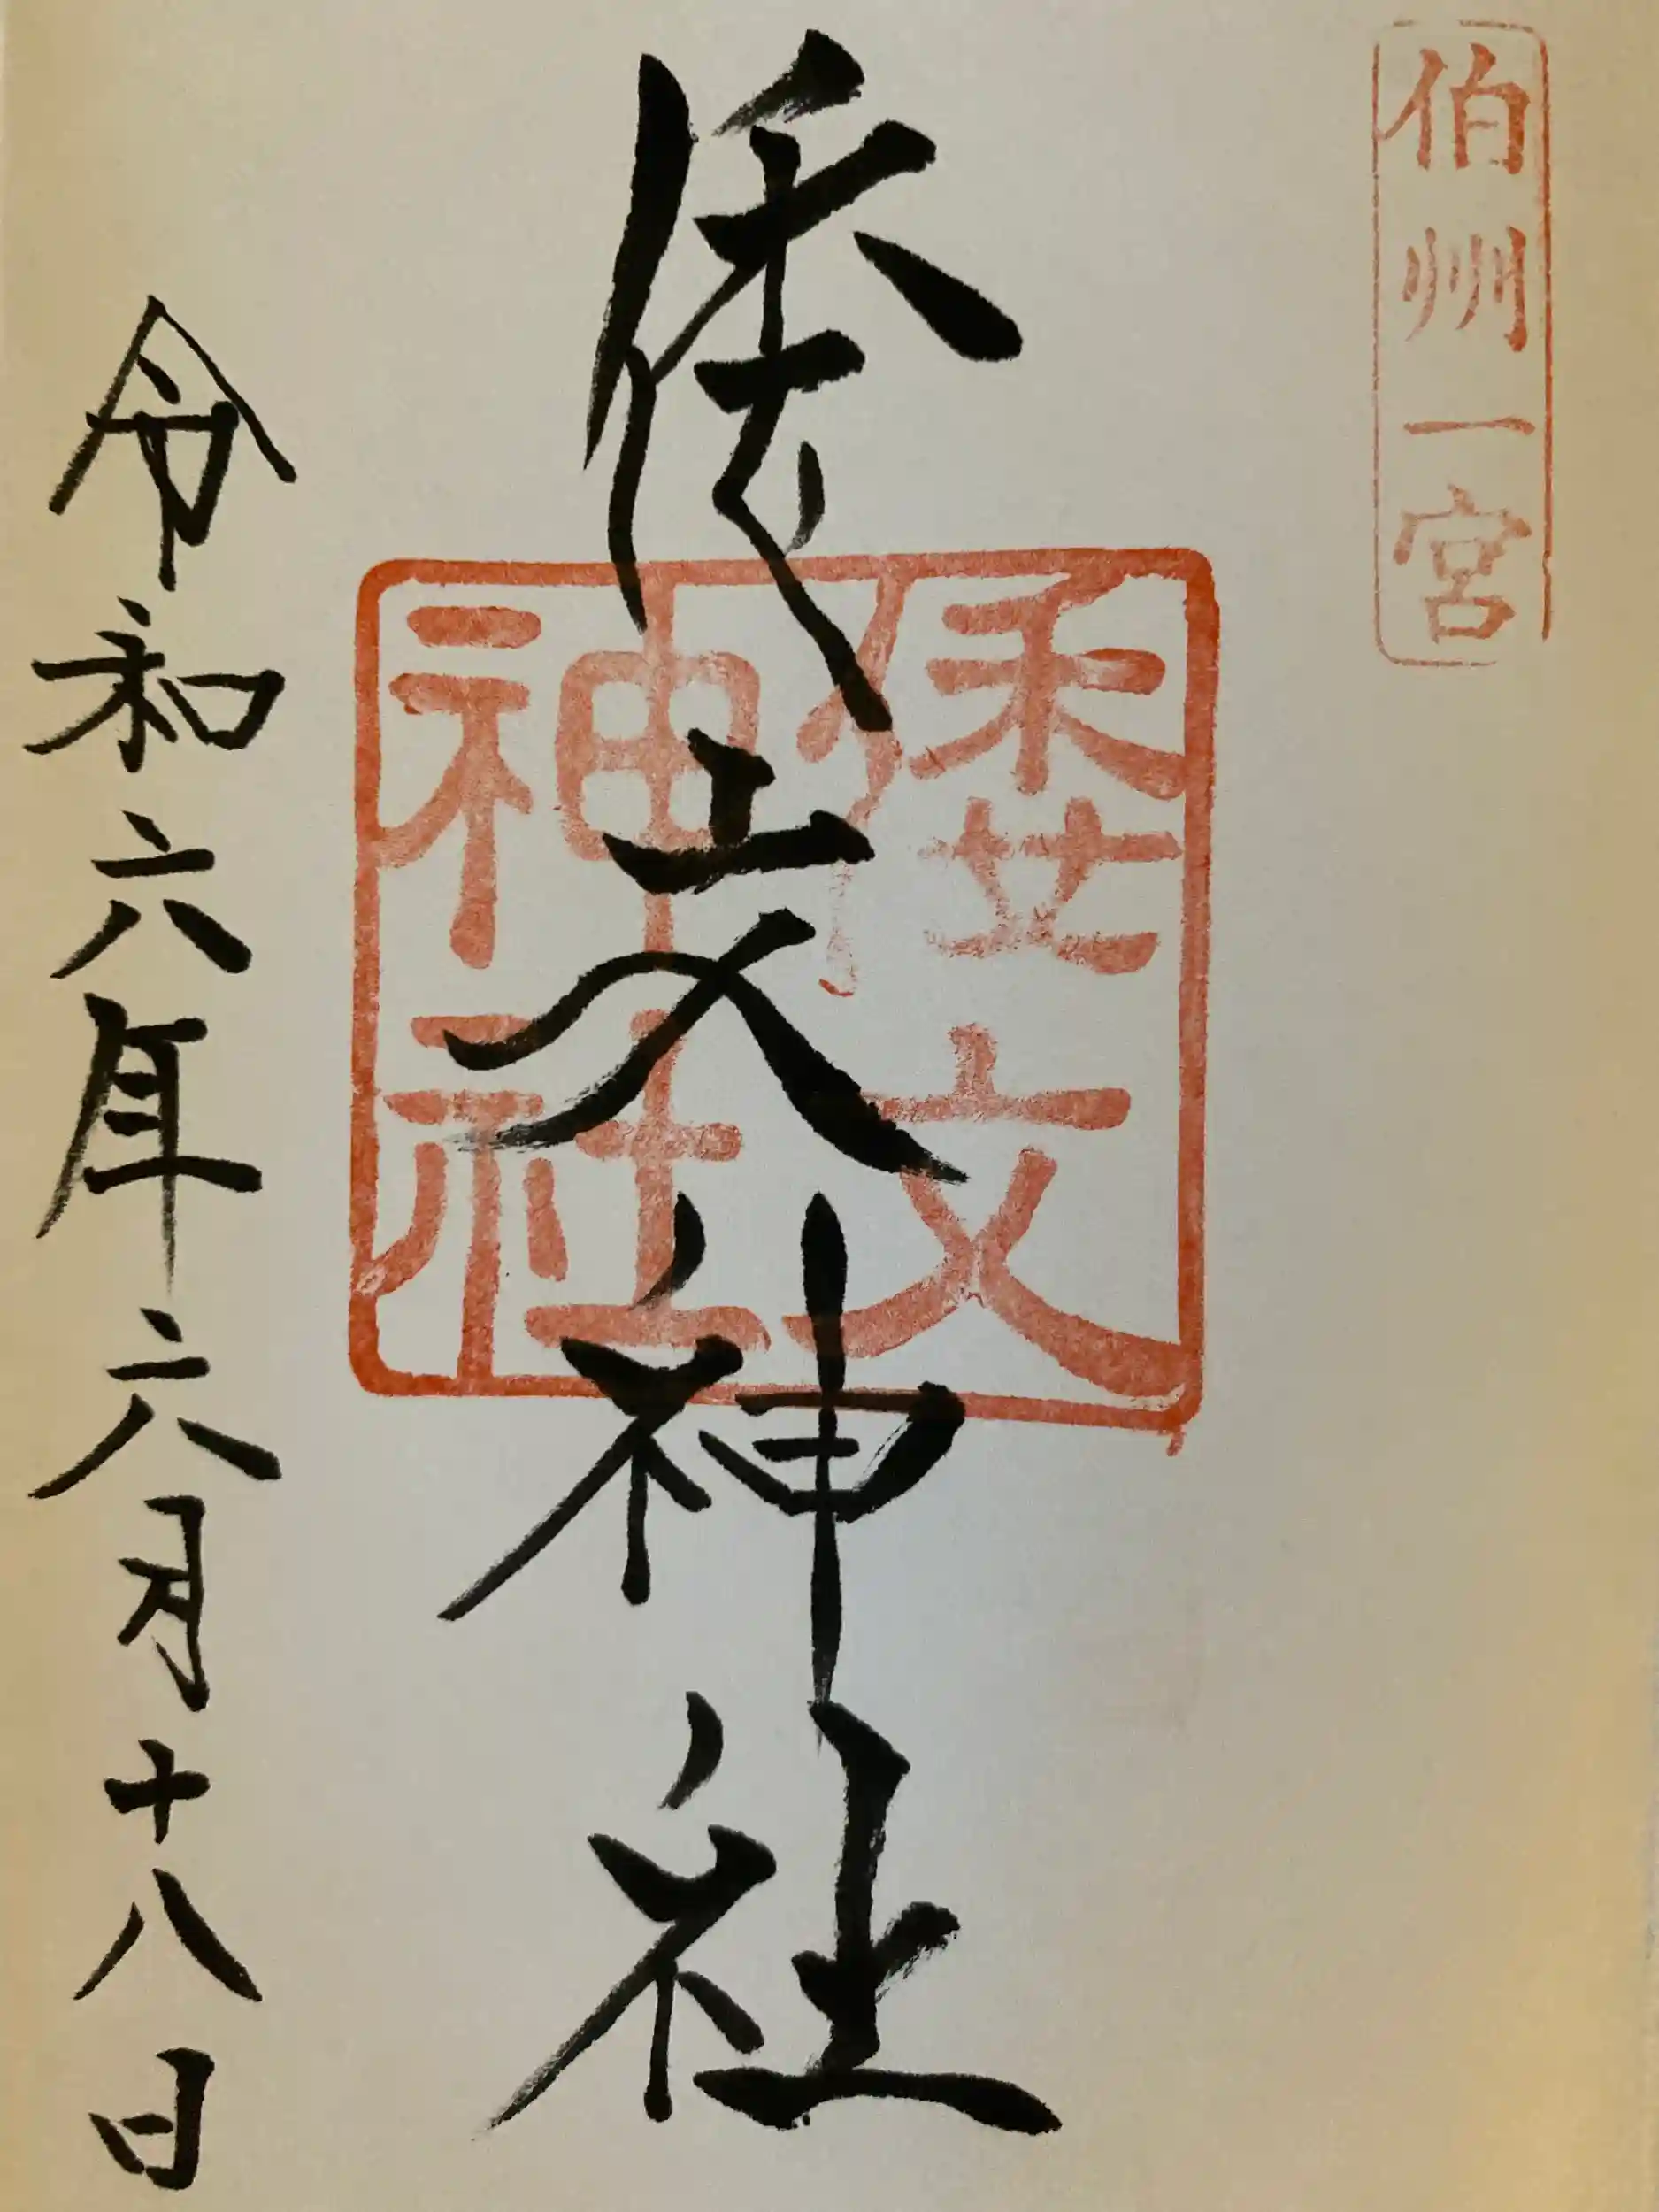 伯州一宮
倭文神社
倭文
神社
令和六年六月十八日